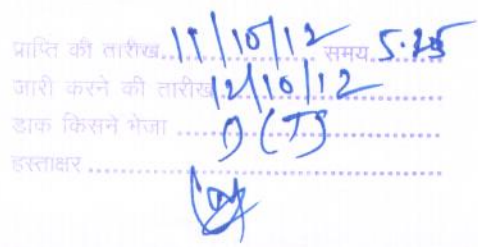 प्राप्ति की तारीख 11/10/12 समय 5.25
जारी करने की तारीख 12/10/12
डाक किसने भेजा
हस्ताक्षर